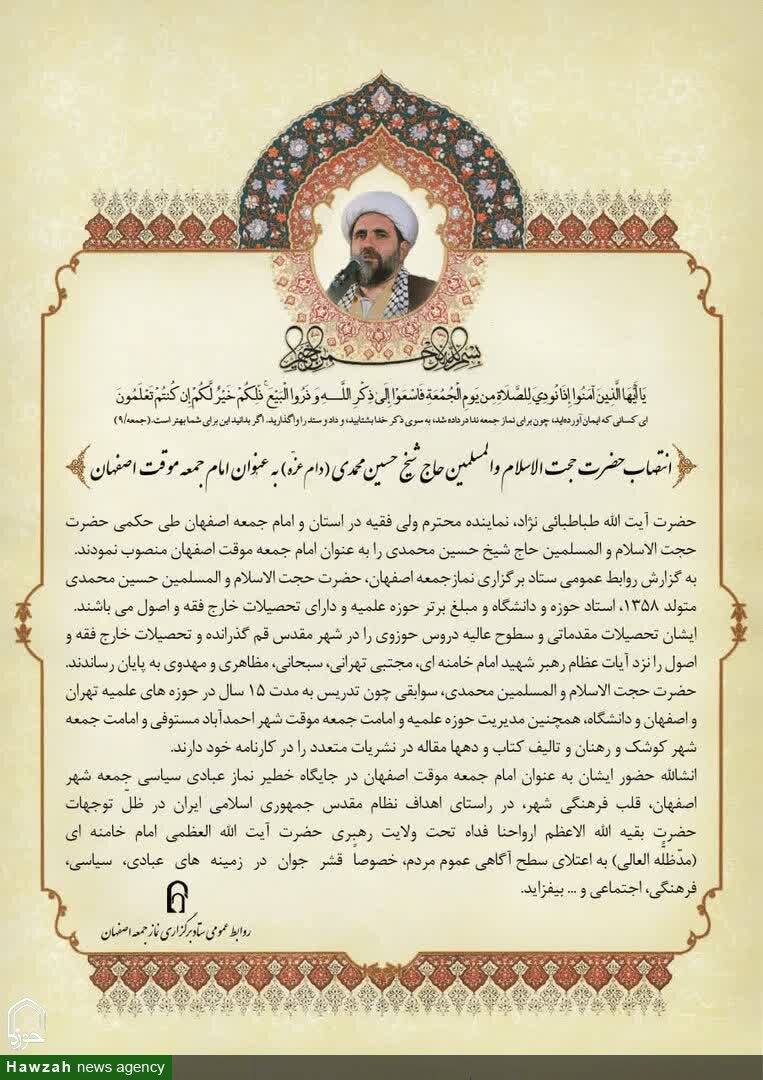 بسم الله الرحمن الرحیم
یَا أَیُّهَا الَّذِینَ آمَنُوا إِذَا نُودِیَ لِلصَّلَاةِ مِن یَوْمِ الْجُمُعَةِ فَاسْعَوْا إِلَىٰ ذِکْرِ اللَّـهِ وَذَرُوا الْبَیْعَ ۚ ذَٰلِکُمْ خَیْرٌ لَّکُمْ إِن کُنتُمْ تَعْلَمُونَ
ای کسانی که ایمان آورده‌اید، چون برای نماز جمعه ندا در داده شد، به سوی ذکر خدا بشتابید، و داد و ستد را واگذارید. اگر بدانید این برای شما بهتر است. (جمعه/۹)
انتصاب حضرت حجت الاسلام والمسلمین حاج شیخ حسین محمدی (دام عزّه) به عنوان امام جمعه موقت اصفهان
حضرت آیت الله طباطبائی نژاد، نماینده محترم ولی فقیه در استان و امام جمعه اصفهان طی حکمی حضرت
حجت الاسلام و المسلمین حاج شیخ حسین محمدی را به عنوان امام جمعه موقت اصفهان منصوب نمودند.
به گزارش روابط عمومی ستاد برگزاری نمازجمعه اصفهان، حضرت حجت الاسلام و المسلمین حسین محمدی
متولد ۱۳۵۸، استاد حوزه و دانشگاه و مبلغ برتر حوزه علمیه و دارای تحصیلات خارج فقه و اصول می باشند.
ایشان تحصیلات مقدماتی و سطوح عالیه دروس حوزوی را در شهر مقدس قم گذرانده و تحصیلات خارج فقه و
اصول را نزد آیات عظام رهبر شهید امام خامنه ای، مجتبی تهرانی، سبحانی، مظاهری و مهدوی به پایان رساندند.
حضرت حجت الاسلام و المسلمین محمدی، سوابقی چون تدریس به مدت ۱۵ سال در حوزه های علمیه تهران
و اصفهان و دانشگاه، همچنین مدیریت حوزه علمیه و امامت جمعه موقت شهر احمدآباد مستوفی و امامت جمعه
شهر کوشک و رهنان و تالیف کتاب و دهها مقاله در نشریات متعدد را در کارنامه خود دارند.
انشالله حضور ایشان به عنوان امام جمعه موقت اصفهان در جایگاه خطیر نماز عبادی سیاسی جمعه شهر
اصفهان، قلب فرهنگی شهر، در راستای اهداف نظام مقدس جمهوری اسلامی ایران در ظلّ توجهات
حضرت بقیه الله الاعظم ارواحنا فداه تحت ولایت رهبری حضرت آیت الله العظمی امام خامنه ای
(مدّظلّه العالی) به اعتلای سطح آگاهی عموم مردم، خصوصاً قشر جوان در زمینه های عبادی، سیاسی،
فرهنگی، اجتماعی و ... بیفزاید.
روابط عمومی ستاد برگزاری نماز جمعه اصفهان
حوزه
Hawzah news agency